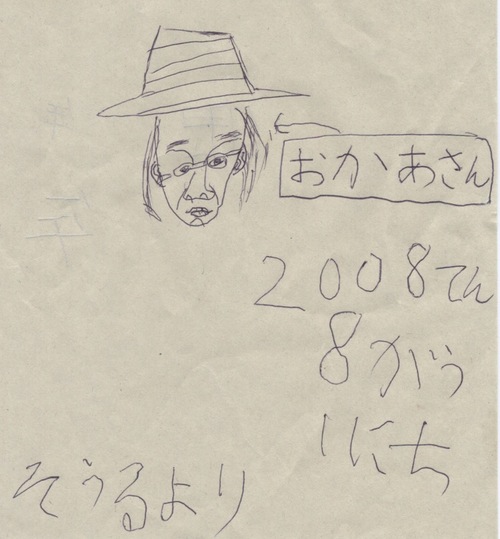 おかあさん
2008てん
8がう
1にち
そうるより